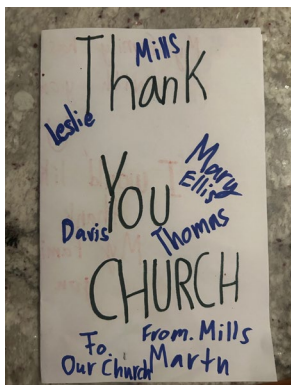 Mills
Thank
Leslie
Mary
Ellis
You
Davis
Thomas
CHURCH
To.
From. Mills
Our Church
Martn